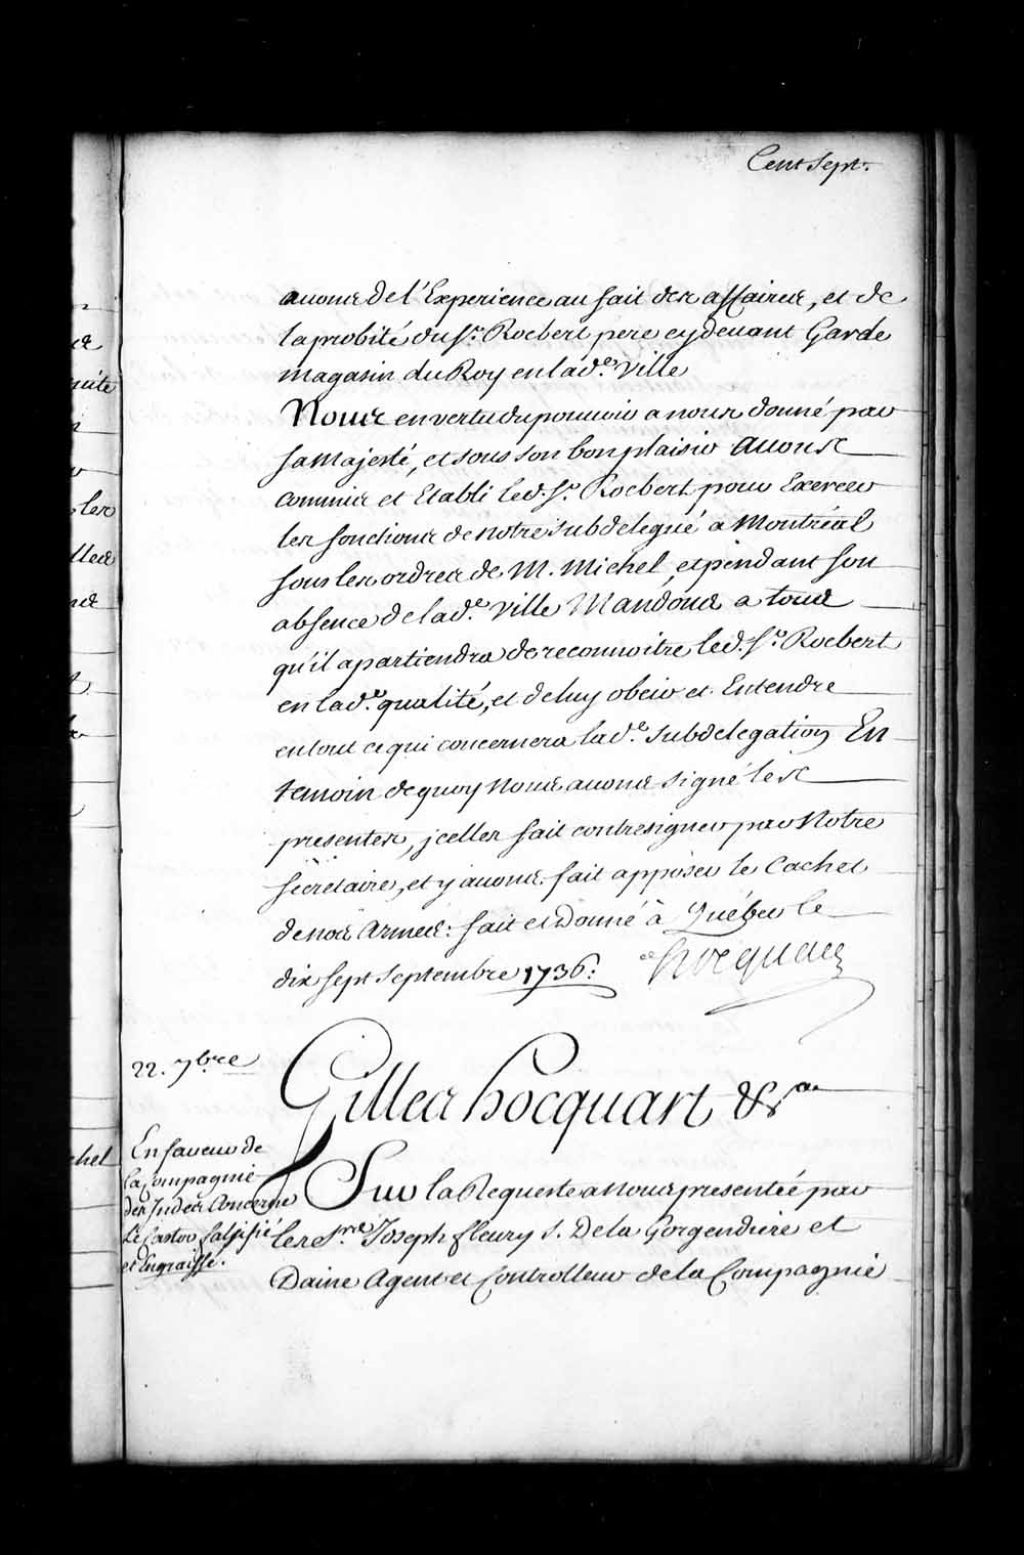 Cent Sept.
avons de l'Experience au fait des affaires, et de
la probité du Sr. Rocbert pere cydevant Garde
magasin du Roy en lade. Ville
Nous en vertu du pouvoir a nous donné par
sa Majesté, et sous son bon plaisir avons
commis et Etabli led. Sr. Rocbert pour Exercer
les fonctions de notre subdelegué a Montréal
sous les ordres de M. Michel, et pendant son
absence de lade. Ville Mandons a tous
qu'il apartiendra de reconnoitre led. Sr. Rocbert
en lade. qualité, et de luy obeir et Entendre
en tout ce qui concernera lade. subdelegation En
temoin de quoy nous avons signé les
presentes, jcelles fait contresigner par Notre
secretaire, et y avons fait apposer le Cachet
de nos Armes: fait et Donné à Québec le
dix sept septembre 1736: Hocquart
22. 7bre
Gilles hocquart &ca.
En faveur de
la Compagnie
des Indes Concerne
Le Castor falsifié
et Engraissé.
Sur la Requeste a Nous presentée par
les Srs. Joseph fleury S. De la Gorgendiere et
Daine Agent et Controlleur de la Compagnie